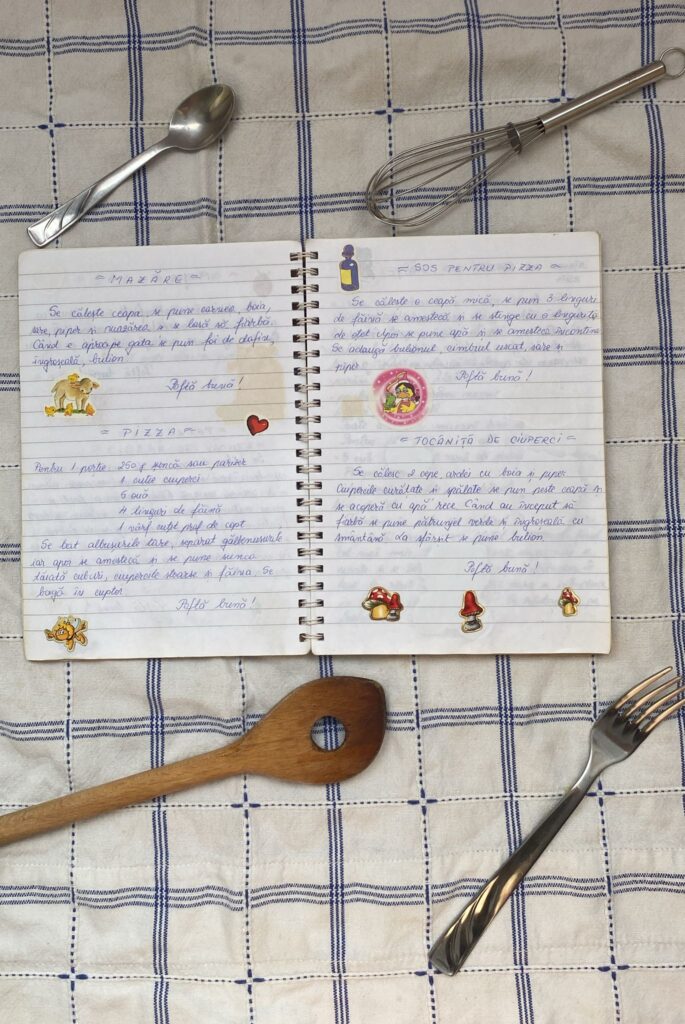 MAZĂRE
Se călește ceapa, se pune carnea, boia,
sare, piper și mazărea și se lasă să fiarbă.
Când e aproape gata se pun foi de dafin,
îngroșeală, bulion.
Poftă bună!
PIZZA
Pentru 1 porție: 250 g șuncă sau parizer
1 cutie ciuperci
6 ouă
4 linguri de făină
1 vârf cuțit praf de copt
Se bat albușurile tare, separat gălbenușurile
iar apoi se amestecă și se pune șunca
tăiată cuburi, ciupercile stoarse și făina. Se
bagă în cuptor.
Poftă bună!
SOS PENTRU PIZZA
Se călește o ceapă mică, se pun 3 linguri
de făină se amestecă și se stinge cu o linguriță
de oțet. Apoi se pune apă și se amestecă încontinu
Se adaugă bulionul, cimbrul uscat, sare și
piper.
Poftă bună!
TOCĂNIȚĂ DE CIUPERCI
Se călesc 2 cepe, ardei cu boia și piper.
Ciupercile curățate și spălate se pun peste ceapă și
se acoperă cu apă rece. Când au început să
fiarbă se pune pătrunjel verde și îngroșeală cu
smântână. La sfârșit se pune bulion.
Poftă bună!